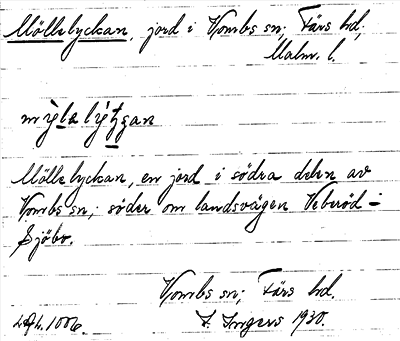 Möllelyckan, jord i Vombs sn, Färs hd,
Malm. l.
Möllelyckan, en jord i södra delen av
Vombs sn, söder om landsvägen Veberöd -
Sjöbo.
Vombs sn, Färs hd.
I. Ingers 1930.